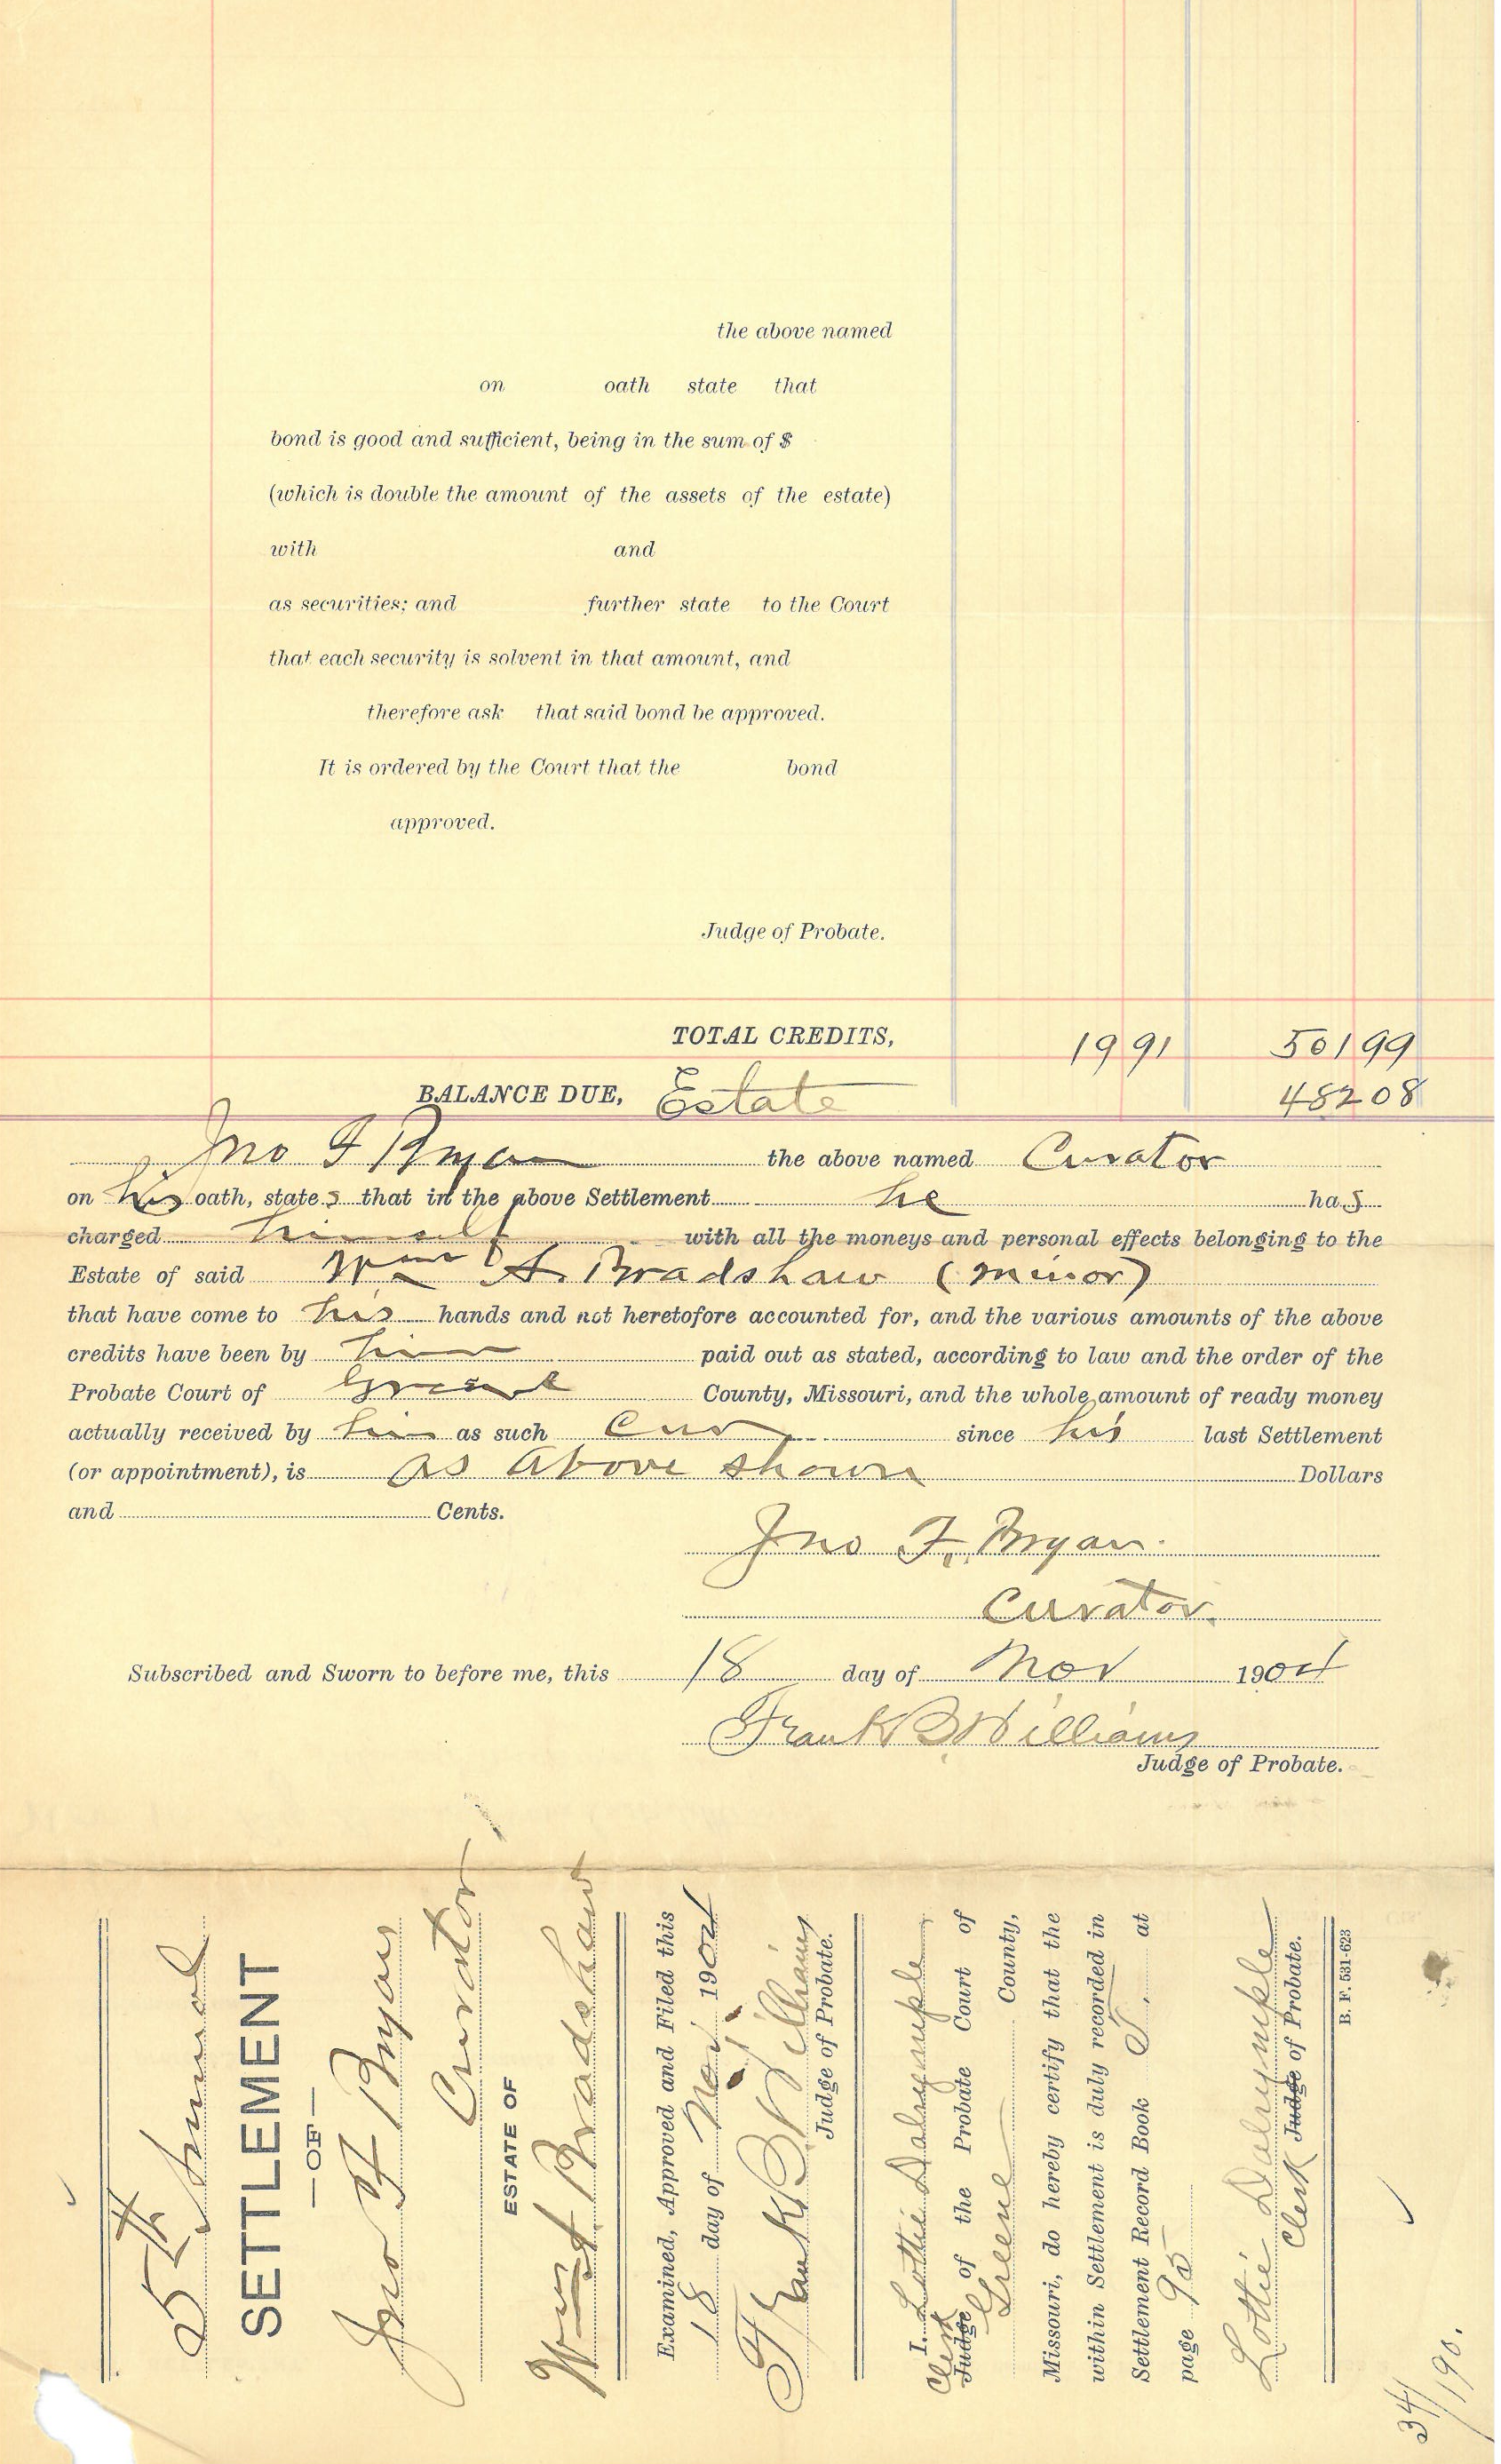 the above named
on oath state that
bond is good and sufficient, being in the sum of $
(which is double the amount of the assets of the estate)
with and
as securities; and further state to the Court
that each security is solvent in that amount, and
therefore ask that said bond be approved.
It is ordered by the Court that the bond
approved.
Judge of Probate.
TOTAL CREDITS, 19 91 501 99
BALANCE DUE, Estate 482 08
Jno F Bryan the above named Curator
on his oath, states that in the above Settlement he has
charged himself with all the moneys and personal effects belonging to the
Estate of said Wm A. Bradshaw (minor)
that have come to his hands and not heretofore accounted for, and the various amounts of the above
credits have been by him paid out as stated, according to law and the order of the
Probate Court of Greene County, Missouri, and the whole amount of ready money
actually received by him as such Cur since his last Settlement
(or appointment), is as above shown Dollars
and Cents.
Jno F. Bryan.
Curator.
Subscribed and Sworn to before me, this 18 day of Nov 1904
Frank B. Williams
Judge of Probate.
5th Annual
SETTLEMENT
—OF—
Jno F Bryan
Curator
ESTATE OF
Wm A Bradshaw
Examined, Approved and Filed this
18 day of Nov 1904
Frank B. Williams
Judge of Probate.
I, Lottie Dalrymple
Clerk Judge of the Probate Court of
Greene County,
Missouri, do hereby certify that the
within Settlement is duly recorded in
Settlement Record Book at
page 95
Lottie Dalrymple
Clerk Judge of Probate.
B. F. 531-623
34/190.